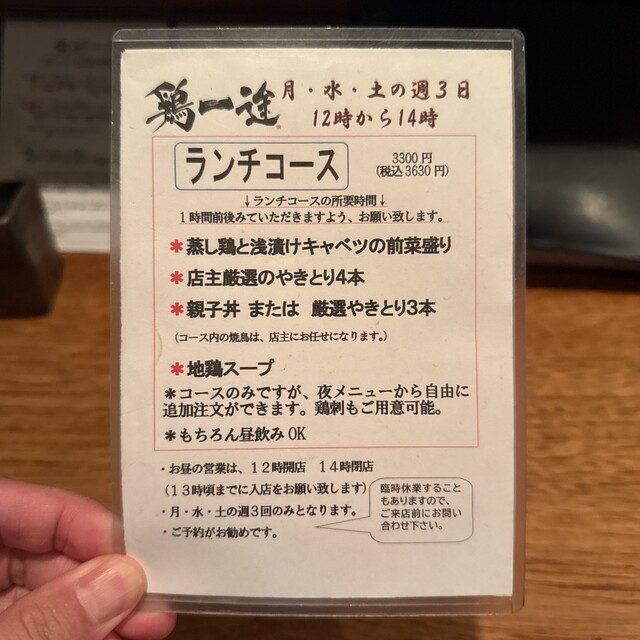 鶏一途 月・水・土の週3日
12時から14時
ランチコース 3300円
(税込3630円)
↓ランチコースの所要時間↓
1時間前後みていただきますよう、お願い致します。
*蒸し鶏と浅漬けキャベツの前菜盛り
*店主厳選のやきとり4本
*親子丼 または 厳選やきとり3本
(コース内の焼鳥は、店主にお任せになります。)
*地鶏スープ
*コースのみですが、夜メニューから自由に
追加注文ができます。鶏刺もご用意可能。
*もちろん昼飲みOK
・お昼の営業は、12時開店 14時閉店
(13時頃までに入店をお願い致します)
・月・水・土の週3回のみとなります。
・ご予約がお勧めです。
臨時休業すること
もありますので、
ご来店前にお問い
合わせ下さい。